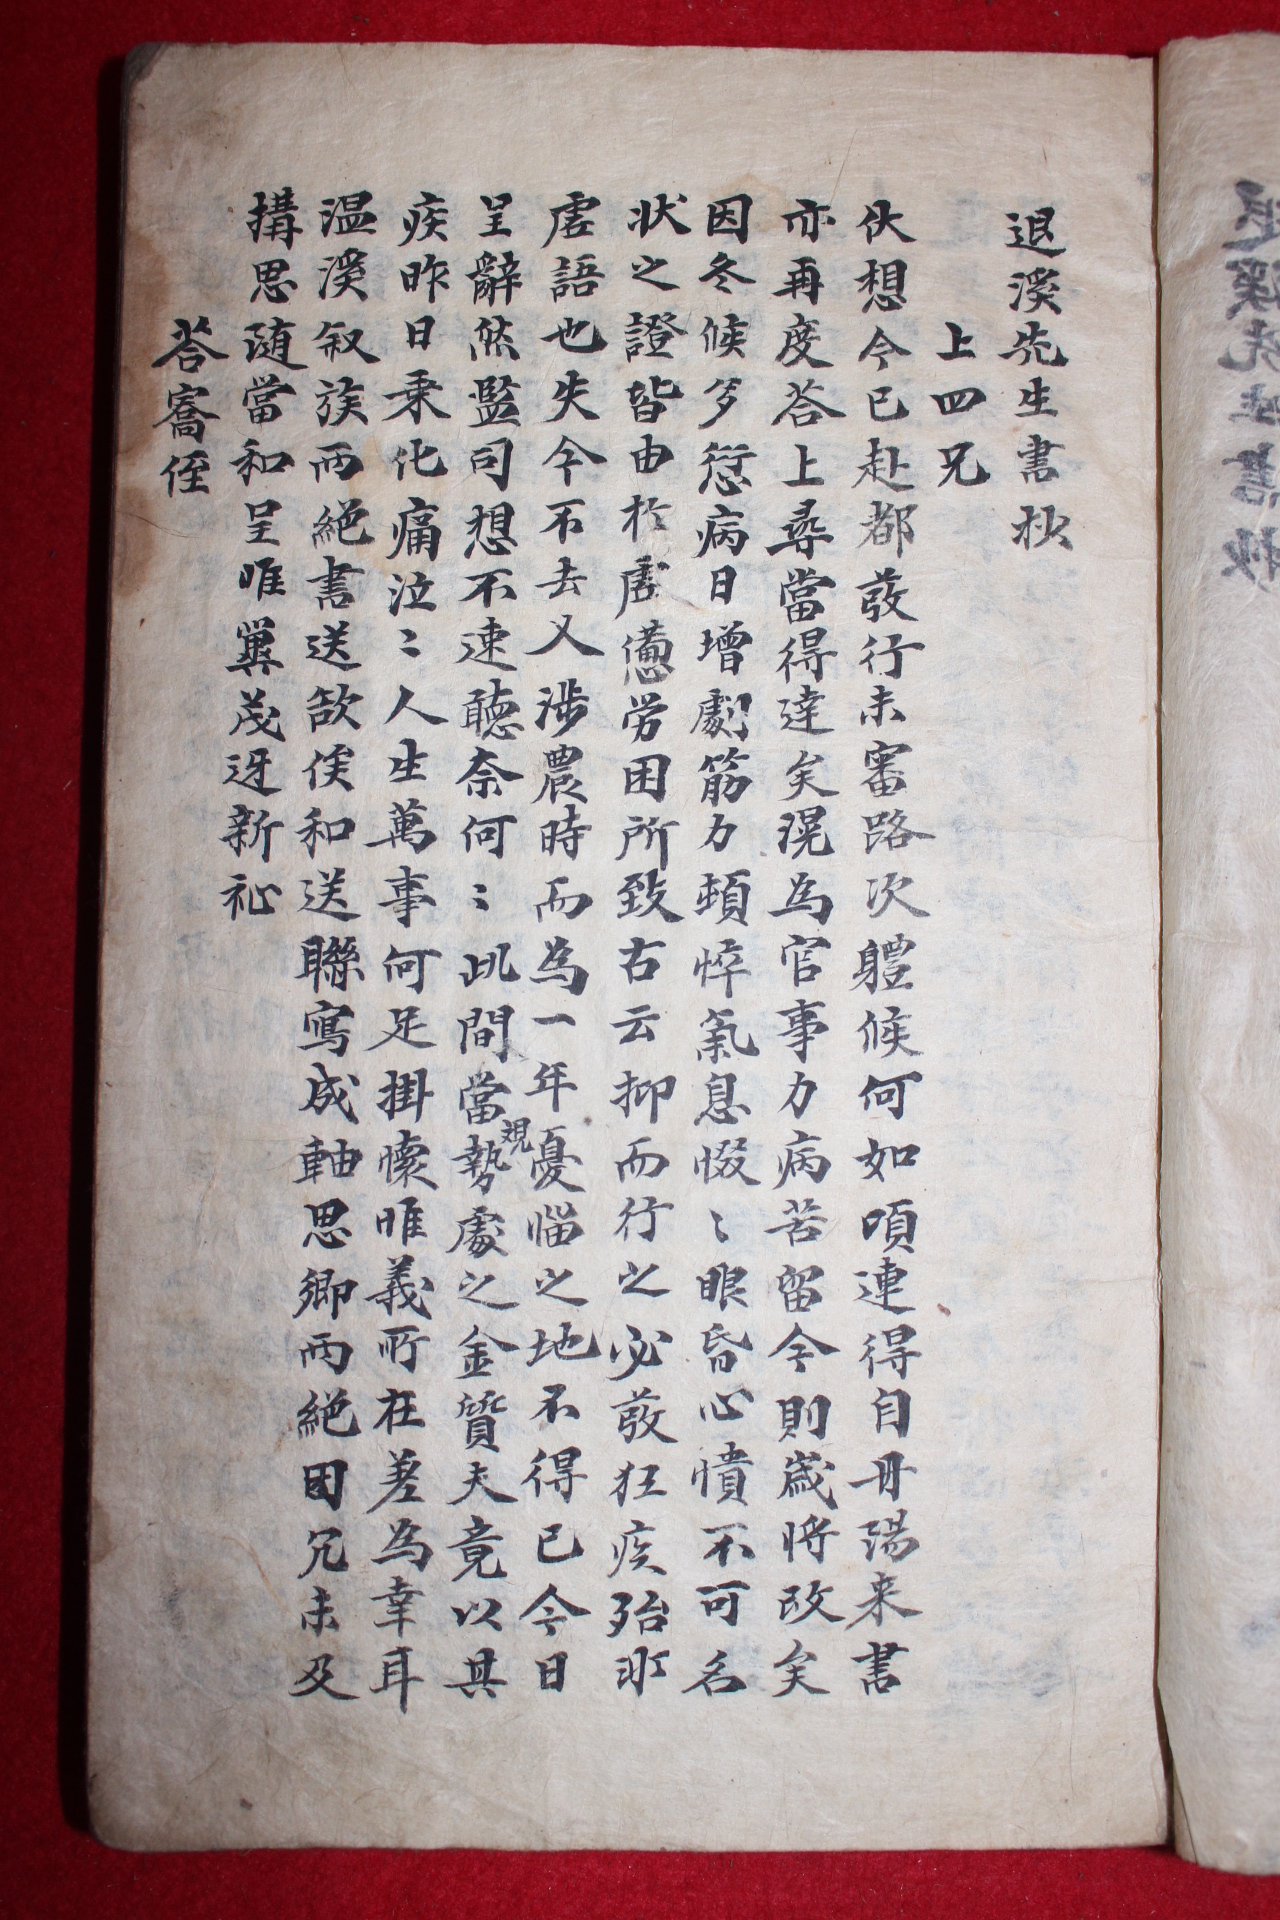 退溪先生書抄
上四兄
伏想今已赴都發行未審路次軆候何如頃連得自丹陽来書
亦再度答上尋當得達矣滉為官事力病苦留今則歲將改矣
因冬候多愆病日增劇筋力頓悴氣息惙〻眼昏心憒不可名
状之證皆由於虛憊労困所致古云抑而行之必發狂疾殆非
虛語也失今不去又涉農時而為一年憂惱之地不得已今日
呈辭然監司想不速聽奈何〻此間當觀勢處之金質夫竟以其
疾昨日乘化痛泣〻人生萬事何足掛懷唯義所在差為幸耳
温溪叙族两絕書送欲俟和送聯寫成軸思卿两絕因冗未及
搆思随當和呈唯冀茂迓新祉
答㝯侄